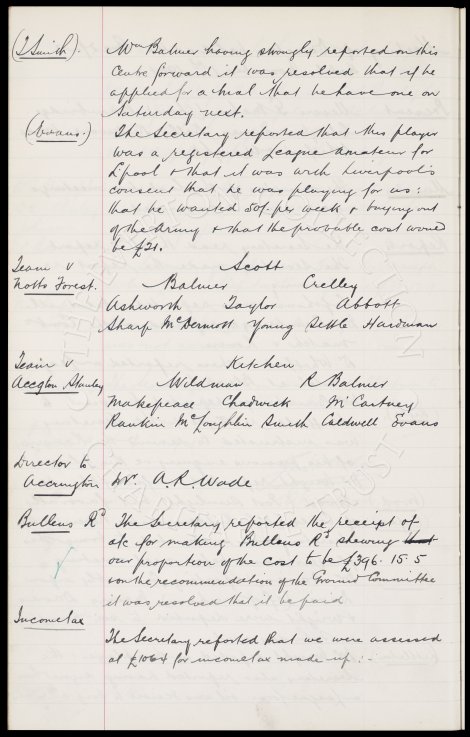 (J Smith).
Wm Balmer having strongly reported on this
Centre forward it was resolved that if he
applied for a trial that he have one on
Saturday next.
(Evans.)
The Secretary reported that this player
was a registered League Amateur for
L'pool & that it was with Liverpool's
consent that he was playing for us:
that he wanted 50/- per week & buying out
of the Army & that the probable cost would
be £21.
Team v
Notts Forest.
Scott
Balmer Crelley
Ashworth Taylor Abbott
Sharp McDermott Young Settle Hardman
Team v
Accgton Stanley
Kitchen
Wildman R Balmer
Makepeace Chadwick McCartney
Rankin McLoughlin Smith Caldwell Evans
Director to
Accrington
Mr. A.R. Wade
Bullens Rd
The Secretary reported the receipt of
a/c for making Bullens Rd shewing that
our proportion of the cost to be £396. 15. 5
& on the recommendation of the Ground Committee
it was resolved that it be paid.
Income tax
The Secretary reported that we were assessed
at £1064 for income tax made up:-